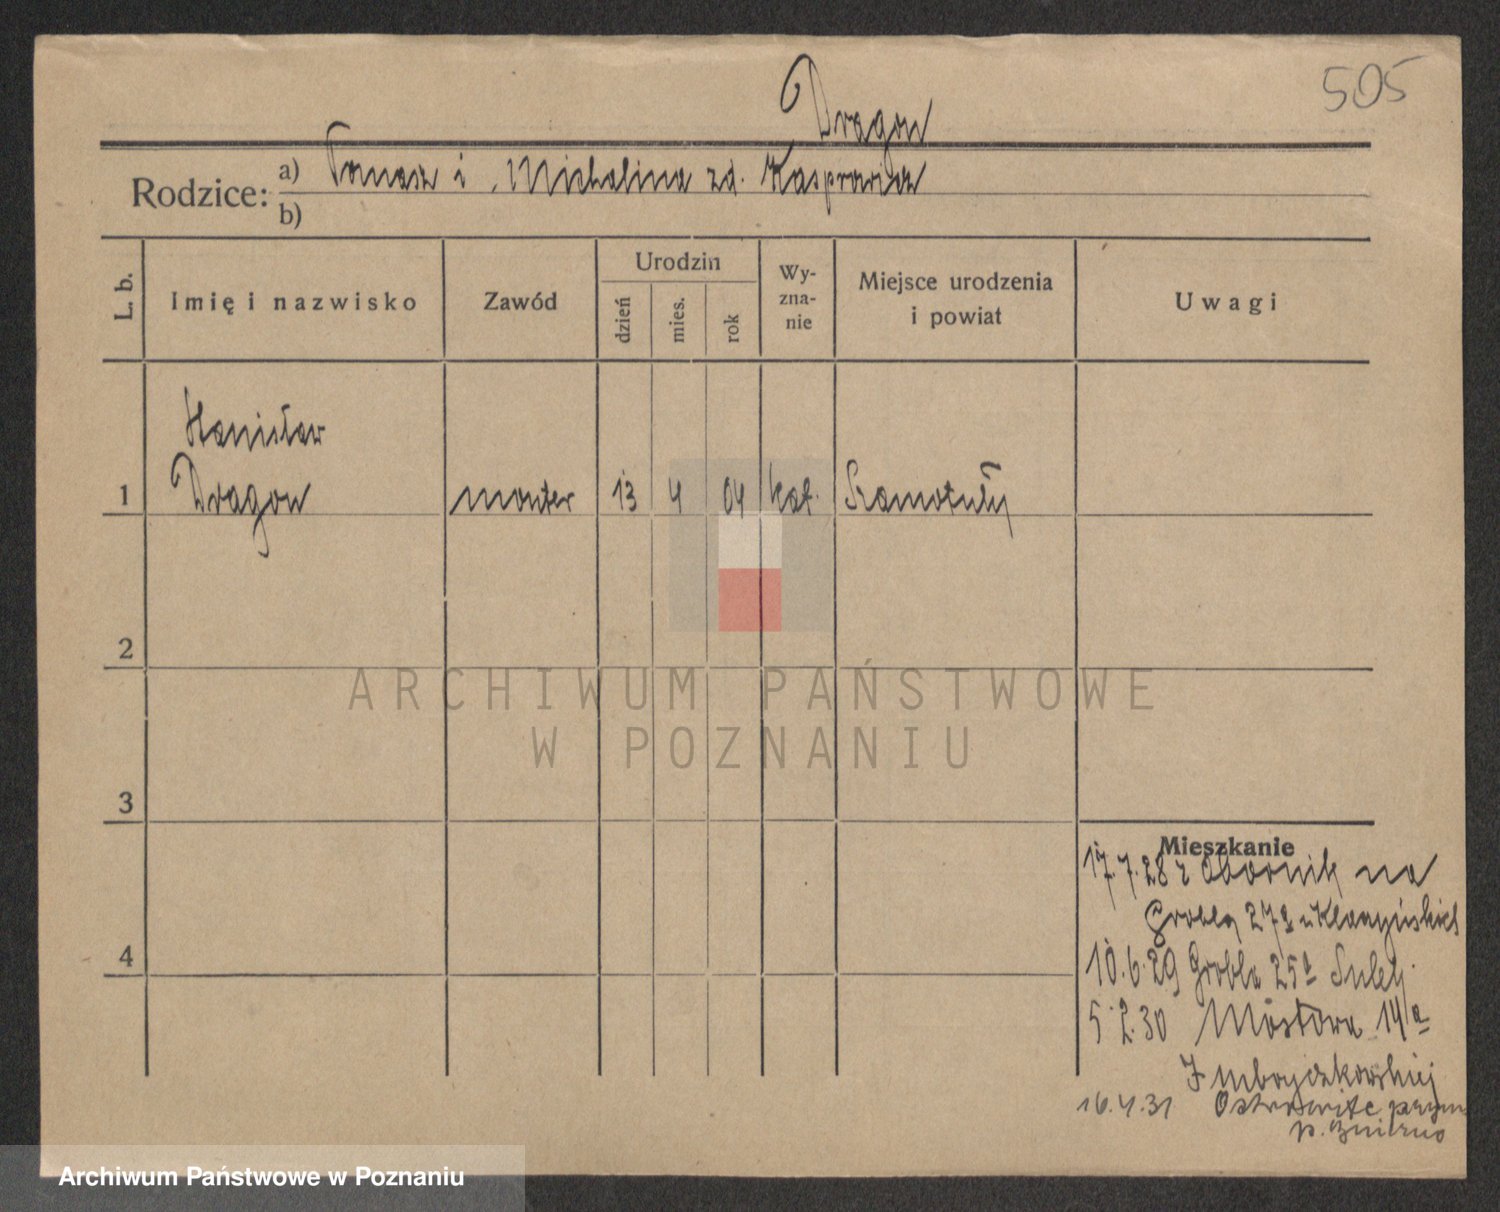 505
Dragon
Rodzice: a) Tomasz i Michalina zd. Kasprowicz
b)
L. b.
Imię i nazwisko
Zawód
Urodzin
dzień
mies.
rok
Wy-
zna-
nie
Miejsce urodzenia
i powiat
Uwagi
Stanisław
1 Dragon monter 13 4 04 kat. Szamotuły
2
ARCHIWUM PAŃSTWOWE
W POZNANIU
3
Mieszkanie
17.7.28 z Obornik na
Groblę 27a u
4
10.6.29 Grobla 25a
5.2.30 Mostowa 14a
16.4.31 Ostrowite
p.
Archiwum Państwowe w Poznaniu